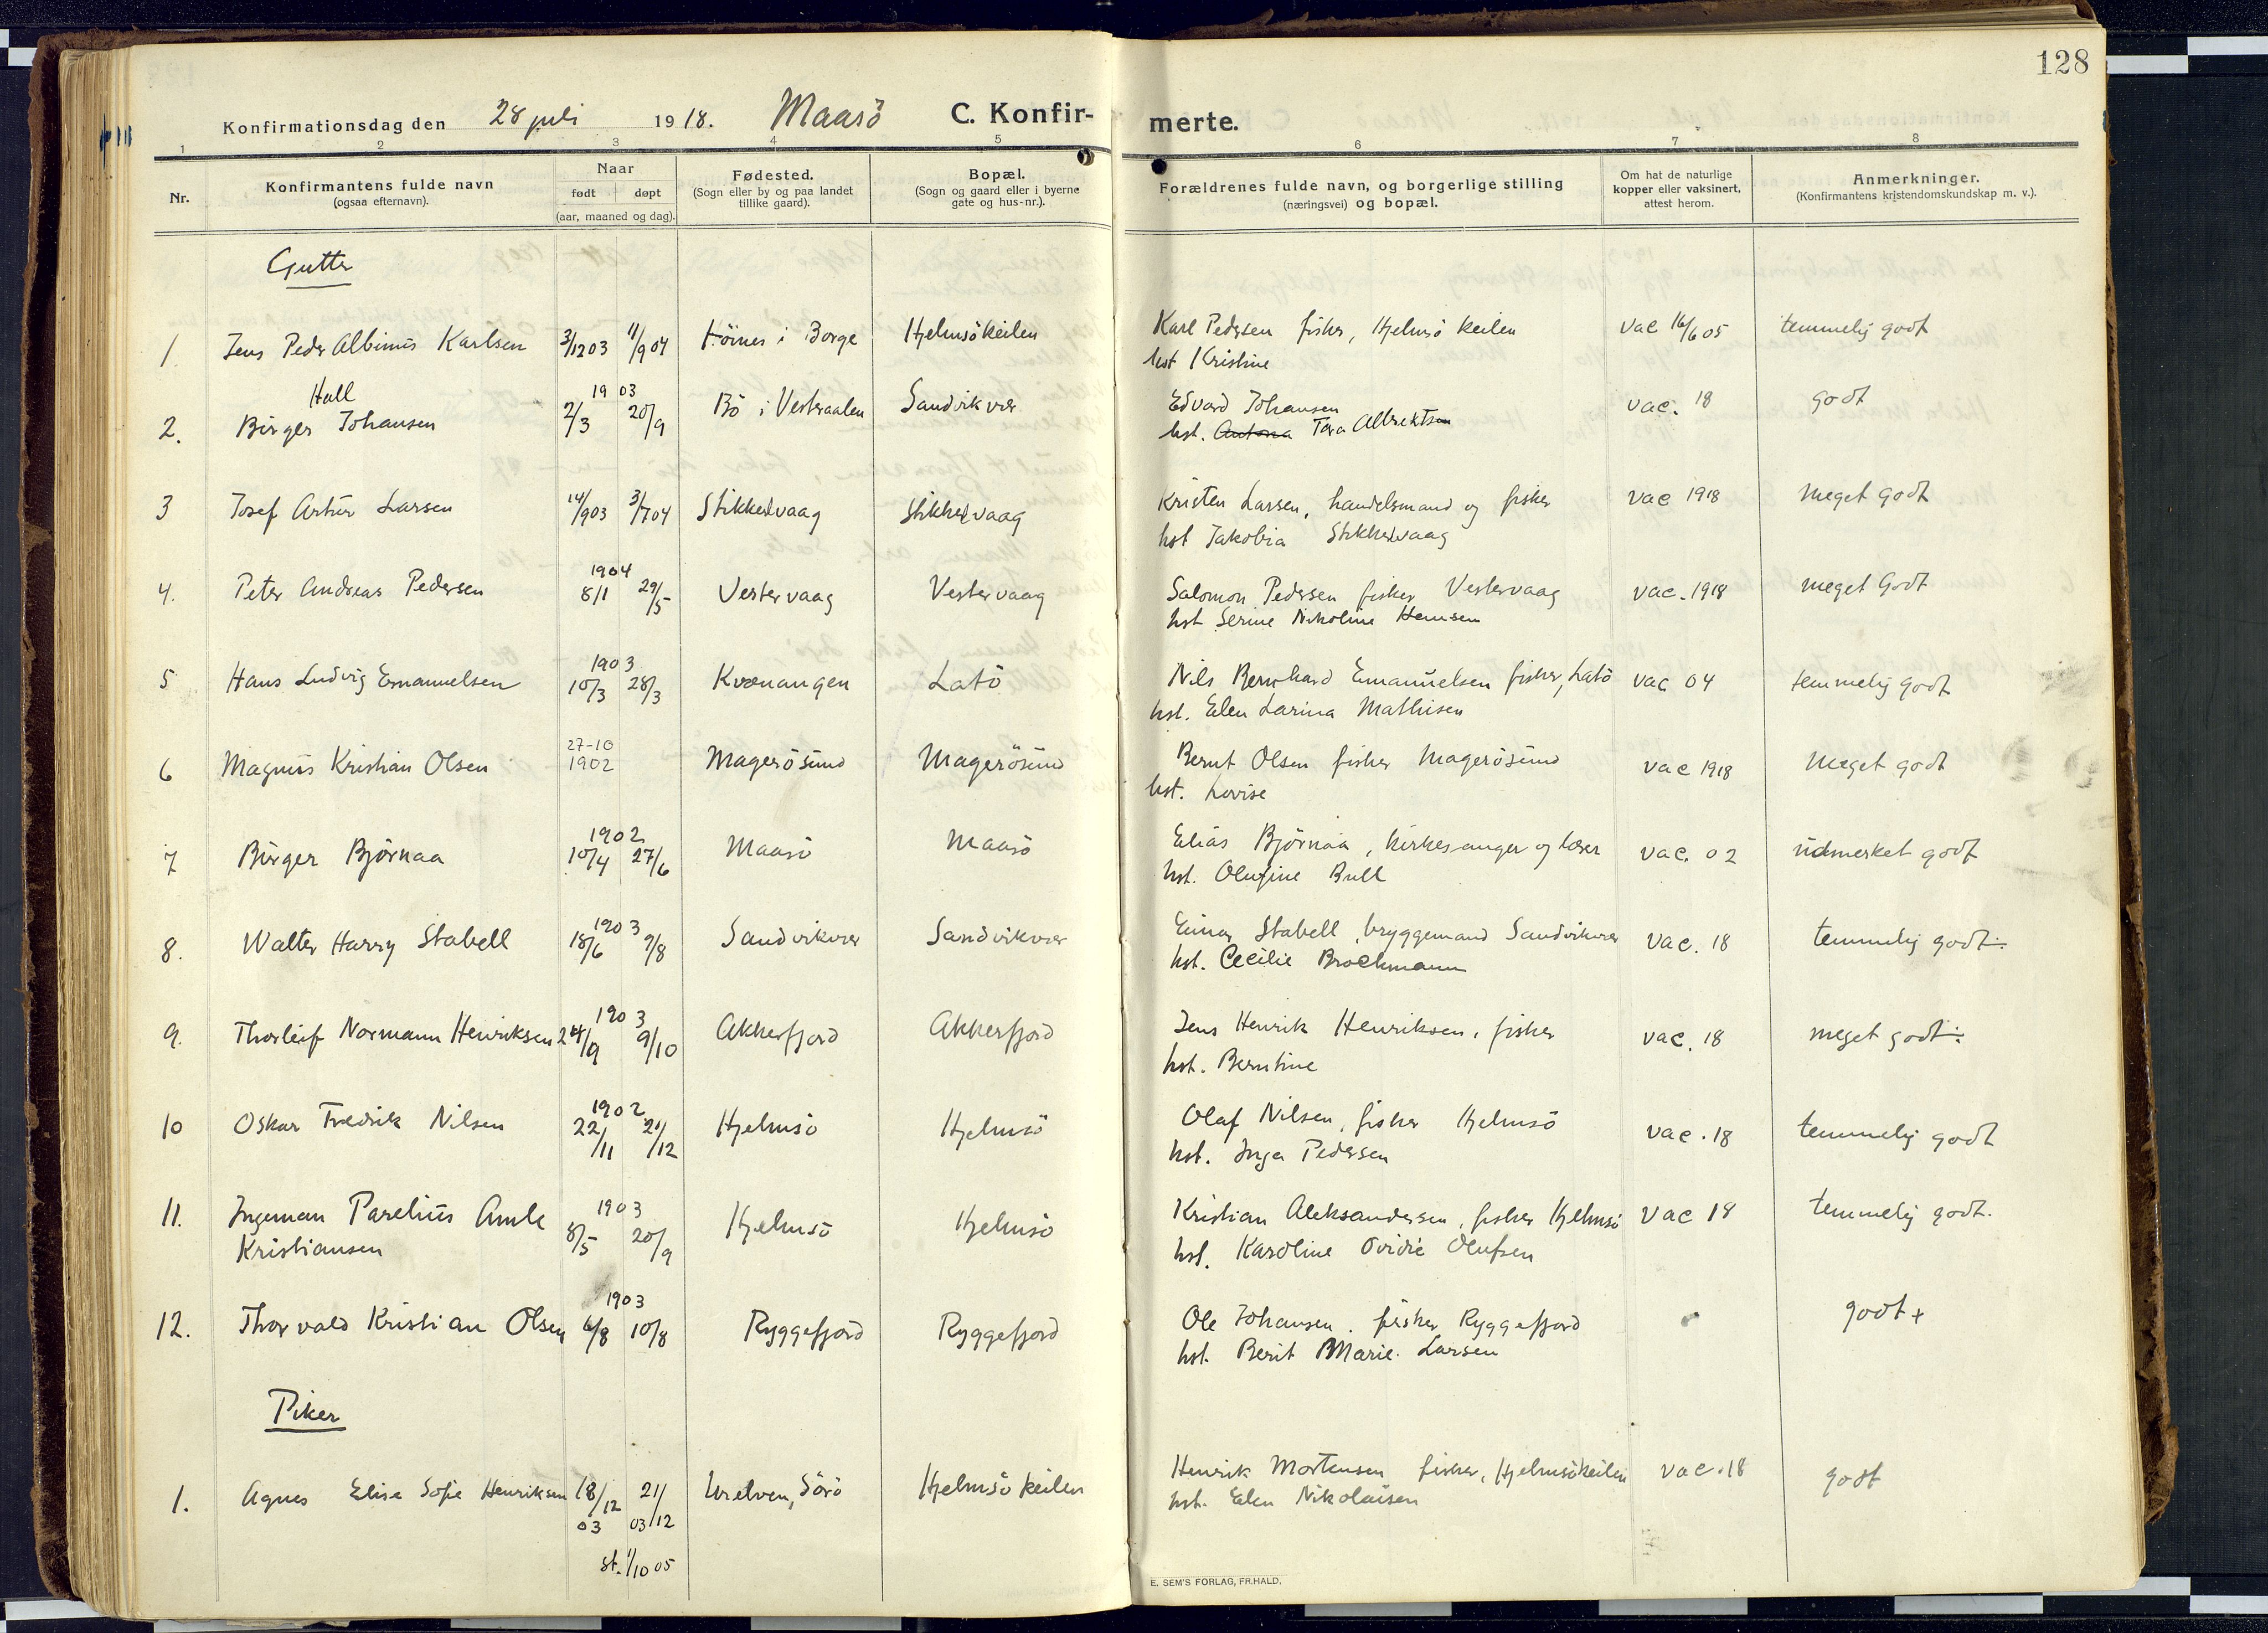 128
Konfirmationsdag den 28 juli 1918. Maasö C. Konfirmerte.
1 2 3 4 5 6 7 8
Nr.
Konfirmantens fulde navn
(ogsaa efternavn).
Naar
født døpt
(aar, maaned og dag).
Fødested.
(Sogn eller by og paa landet
tillike gaard).
Bopæl.
(Sogn og gaard eller i byerne
gate og hus-nr.).
Forældrenes fulde navn, og borgerlige stilling
(næringsvei) og bopæl.
Om hat de naturlige
kopper eller vaksinert,
attest herom.
Anmerkninger.
(Konfirmantens kristendomskundskap m. v.).
Gutter
1. Jens Peder Albinus Karlsen 3/12 03 11/9 04 i Borge Hjelmsökeilen Karl Pedersen fisker, Hjelmsö keilen vac 16/6 05 temmelig godt
hst Kristine
Hall 1903
2. Birger Johansen 2/3 20/9 Bö i Vesteraalen Sandvikvær Edvard Johansen vac. 18 godt
hst. Antona Tora Albrektsen
3 Josef Artur Larsen 14/9 03 3/7 04 Stikkelvaag Stikkelvaag Kristen Larsen, handelsmand og fisker vac 1918 meget godt
hst Jakobia Stikkelvaag
1904
4. Peter Andreas Pedersen 8/1 29/5 Vestervaag Vestervaag Salomon Pedersen fisker Vestervaag vac. 1918 meget Godt
hst Serine Nikoline Hemsen
1903
5 Hans Ludvig Emanuelsen 10/3 28/3 Kvænangen Latö Nils Bernhard Emanuelsen fisker, Latö vac 04 temmelig godt
hst. Elen Larina Mathisen
27-10
6 Magnus Kristian Olsen 1902 Magerösund Magerösund Bernt Olsen fisker Magerösund vac 1918 Meget godt
hst. Lovise
1902
7 Birger Bjørnaa 10/4 27/6 Maasö Maasö Elias Bjørnaa, kirkesanger og lærer vac. 02 udmerket godt
hst. Olufine Bull
1903
8. Walter Harry Stabell 18/6 9/8 Sandvikvær Sandvikvær Einar Stabell, bryggemand Sandvikvær vac. 18 temmelig godt÷
hst. Cecilie Brochmann
1903
9. Thorleif Normann Henriksen 24/9 9/10 Akkerfjord Akkerfjord Jens Henrik Henriksen, fisker vac. 18 meget godt÷
hst. Berntine
1902
10 Oskar Fredrik Nilsen 22/11 21/12 Hjelmsö Hjelmsö Olaf Nilsen, fisker Hjelmsö vac. 18 temmelig godt
hst. Inga Pedersen
1903
11. Ingeman Parelius Amle 8/5 20/9 Hjelmsö Hjelmsö Kristian Aleksandersen, fisker Hjelmsö vac 18 temmelig godt.
Kristiansen hst. Karoline Ovidie Olufsen
1903
12. Thorvald Kristian Olsen 6/8 10/8 Ryggefjord Ryggefjord Ole Johansen, fisker Ryggefjord godt +
hst. Berit Marie Larsen
Piker
1. Agnes Elise Sofie Henriksen 18/12 03 21/12 03 Sörö Hjelmsö keilen Henrik Mortensen fisker, Hjelmsökeilen vac. 18 godt
hst. Elen Nikolaisen
st. 1/10 05
E. SEM'S FORLAG, FR.HALD.